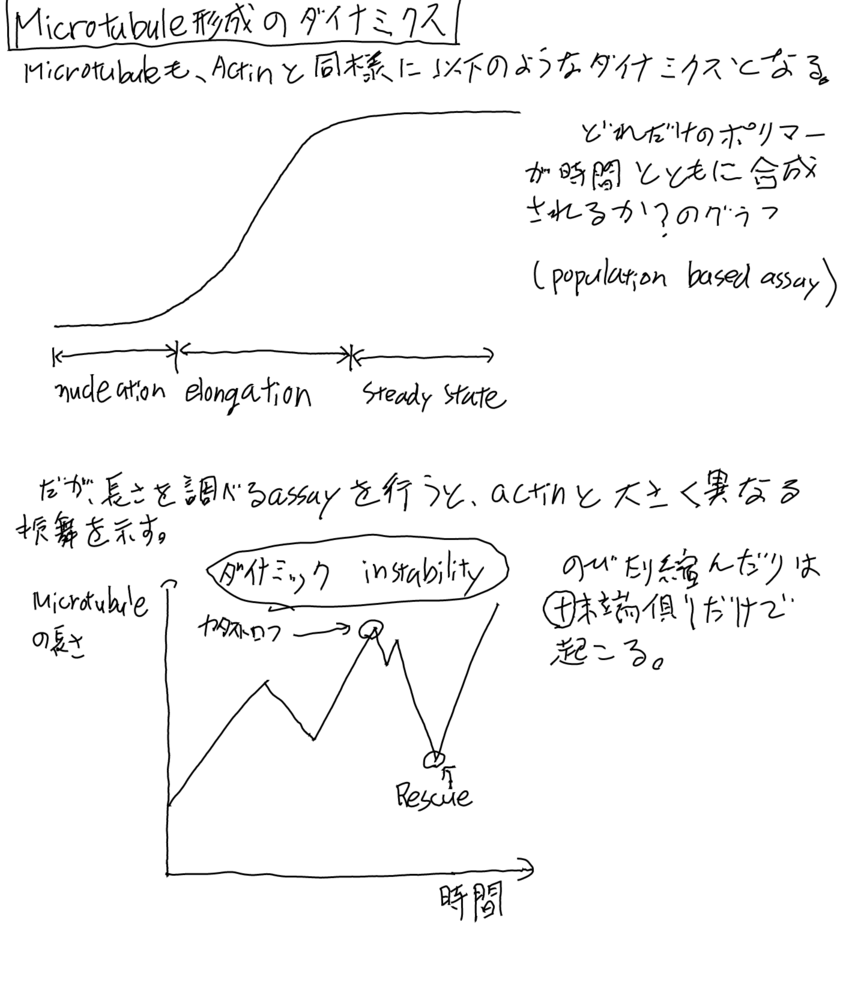 Microtubule形成のダイナミクス
Microtubuleも、Actinと同様に以下のようなダイナミクスとなる。
どれだけのポリマー
が時間とともに合成
されるか?のグラフ
(population based assay)
nucleation elongation steady state
だが、長さを調べるassayを行うと、actinと大きく異なる
振舞を示す。
ダイナミック instability
のびたり縮んだりは
⊕末端側だけで
起こる。
Microtubule
の長さ
カタストロフ
Rescue
時間